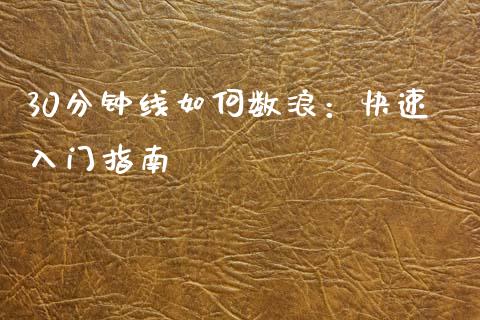 30分钟线如何数浪：快速
入门指南